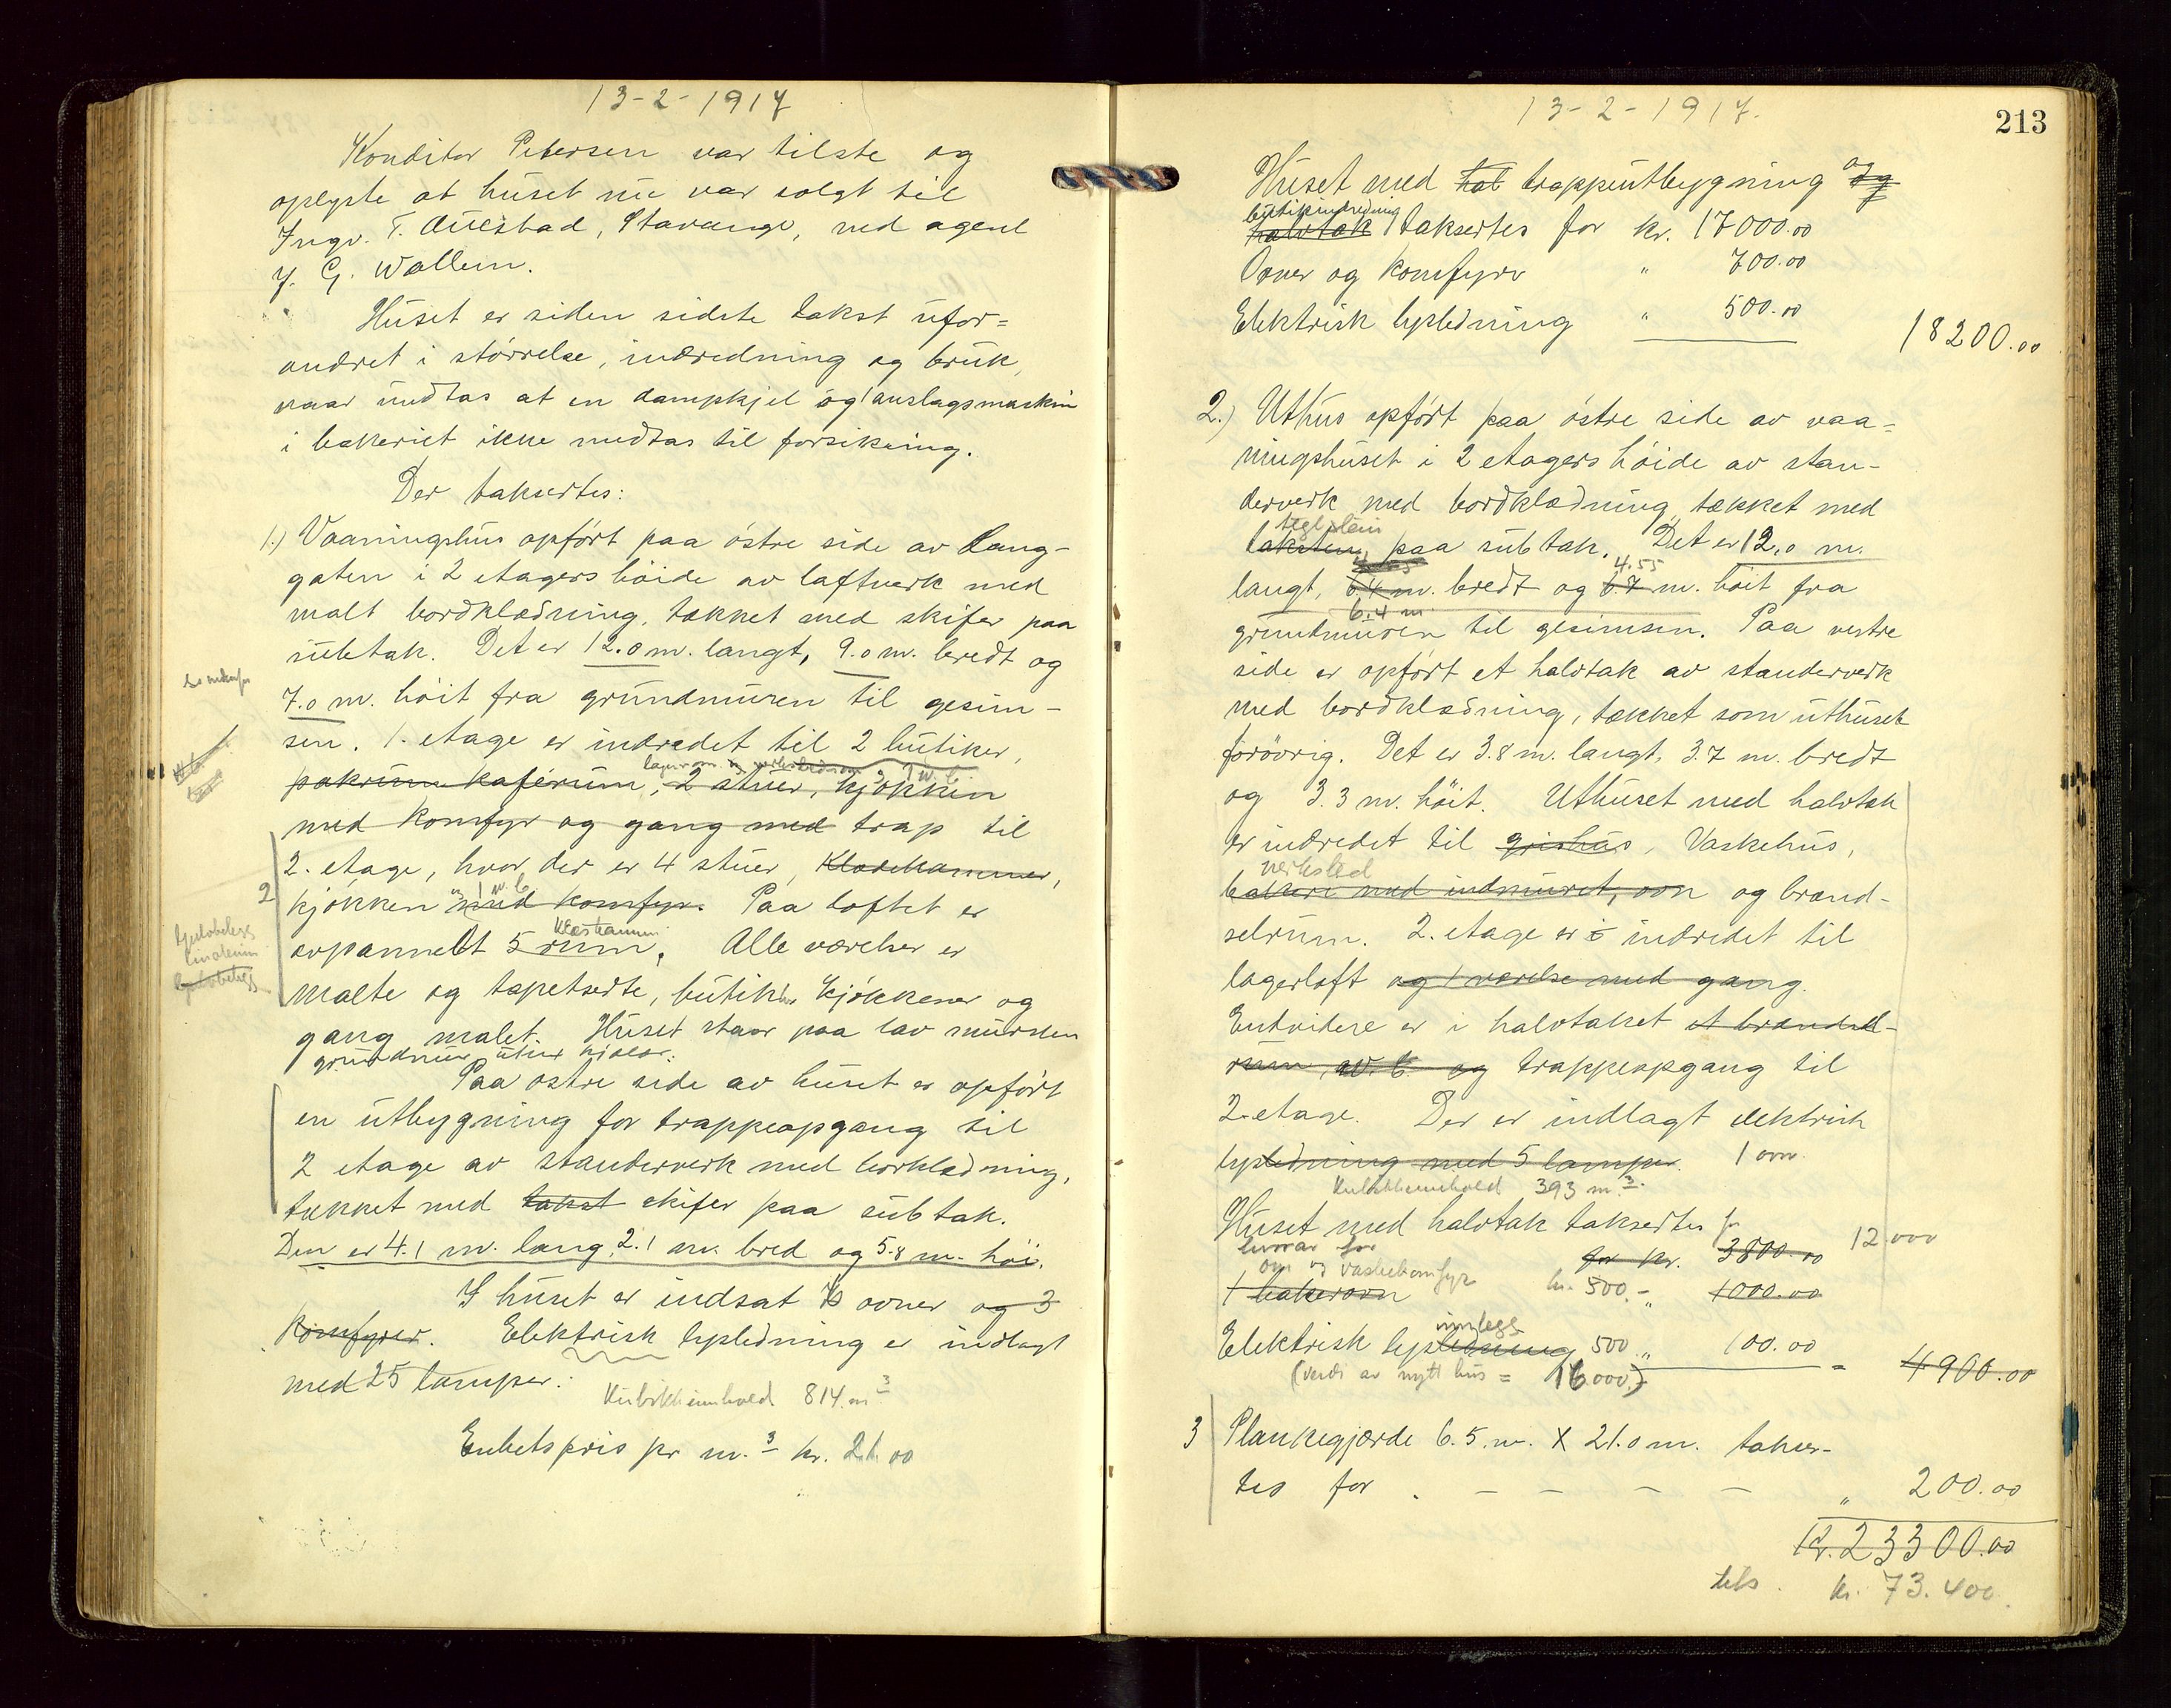 13-2-1917
Konditor Petersen var tilste og
oplyste at huset nu var solgt til
Ingv. T. Auestad, Stavanger, ved agent
J. G. Wallem.
Huset er siden sidste takst ufor=
andret i störrelse, indredning og bruk,
naar undtas at en dampkjel og anslagsmaskin
i bakeriet ikke medtas til forsikring.
Der taksertes:
1.) Vaaningshus opfört paa östre side av Lang-
gaten i 2 etagers höide av laftverk med
malt bordklædning, tækket med skifer paa
subtak. Det er 12.0 m. langt, 9.0 m. bredt og
7.0 m. höit fra grundmuren til gesim-
sen. 1. etage er indredet til 2 butiker,
lagerrom og verkstedrom og 1 w.c.
pakrum kaférum, 2 stuer, kjökken
med komfyr og gang med trap til
2. etage, hvor der er 4 stuer, Klædekammer,
2
og 1 w.c.
kjökken med komfyr. Paa loftet er
avpannelt 5 rum. Alle værelser er
linoleum
malte og tapetserte, butik kjökkener og
gang malet. Huset staar paa lav mursten
grundmur uten kjeler.
Paa östre side av huset er opfört
en utbygning for trappeopgang til
2 etage av standerverk med borklædning,
tækket med takst skifer paa subtak.
Den er 4.1 m. lang, 2.1 m. bred og 5.8 m. höi.
I huset er indsat ovner og 3
Komfyrer. Elektrisk lysledning er indlagt
med 25 lamper.
Kubikkinnhold 814 m3
Enhetspris pr m.3 kr. 21.00
13-2-1917.
213
Huset med hal trappeutbygning og
butikindredning
halvtak taksertes for kr. 17000.00
Ovner og komfyrer " 700.00
Elektrisk lysledning " 500.00
18200.00
2.) Uthus opfört paa östre side av vaa=
ningshuset i 2 etagers höide av stan-
derverk med bordklædning, tækket med
teglstein
taksten, paa subtak. Det er 12.0 m.
4.55
langt, 6.4 m. bredt og 6.7 m. höit fra
6.4 m.
grundmuren til gesimsen. Paa vestre
side er opfört et halvtak av standerverk
med bordklædning, tækket som uthuset
forövrig. Det er 3.8 m. langt, 3.7 m. bredt
og 3.3 m. höit. Uthuset med halvtak
er indredet til grishus, Vaskehus,
verksted
bakeri med indmuret ovn og brænd-
selrum. 2. etage er indredet til
lagerloft og 1 værelse med gang.
Endvidere er i halvtaket et brændsel-
rum, w.c. og trappeopgang til
2. etage. Der er indlagt elektrisk
lysledning med 5 lamper. 1 ovn.
Kubikkinnhold 393 m.3
Huset med halvtak taksertes for 12.000
hvorav for
for kr. 3800.00
ovn og vaskekomfyr
1 bakerovn kr. 500.- " 1000.00
innlegg
Elektrisk lysledning 500 " 100.00
= 4900.00
(verdi av nytt hus = 16.000)
3 Plankegjærde 6.5 m. X 21.0 m. takser-
tes for . — — — — " 200.00
Kr. 23300.00
tils. kr. 73.400.